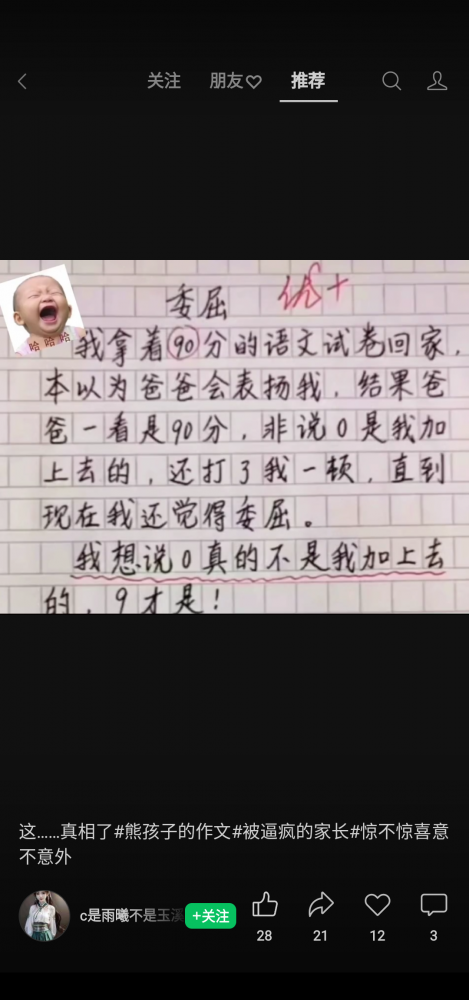 关注 朋友 推荐
委屈 优+
哈哈哈
我拿着90分的语文试卷回家，
本以为爸爸会表扬我，结果爸
爸一看是90分，非说0是我加
上去的，还打了我一顿，直到
现在我还觉得委屈。
我想说0真的不是我加上去
的，9才是！
这……真相了#熊孩子的作文#被逼疯的家长#惊不惊喜意
不意外
c是雨曦不是玉溪 +关注
28 21 12 3